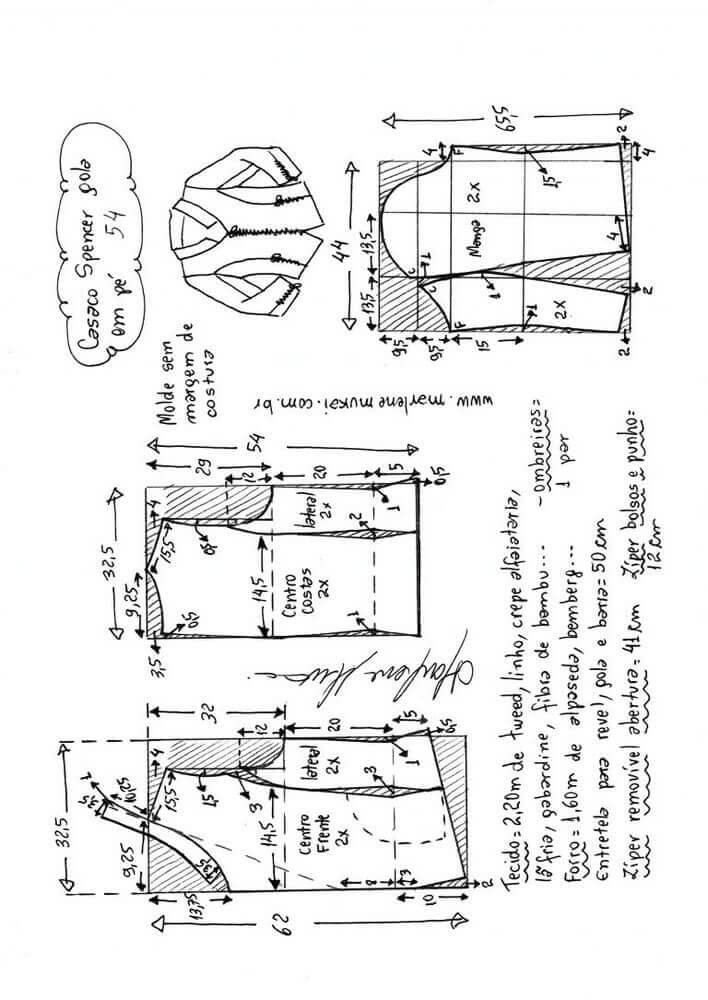 Casaco Spencer gola
em pé 54
Molde sem
margem de
costura
www.marlenemukai.com.br
65,5
44
13,5
13,5
9,5
9,5
15
4
F
2
4
1,5
2x
Manga
4
1
C
C
1
1
2x
F
2
2
54
29
12
20
5
0,5
32,5
9,25
4
15,5
3,5
0,5
14,5
lateral
2x
Centro
costas
2x
2
1
1
32
12
20
5
0,5
32,5
9,25
10,25
4
15,5
1,5
3
14,5
lateral
2x
Centro
Frente
2x
3
1
8
3
10
2
13,75
62
Tecido = 2,20m de tweed, linho, crepe alfaiataria,
lã fria, gabardine, fibra de bambu... - Ombreiras =
1 par
Forro = 1,60m de alpaseda, bemberg...
Entretela para revel, gola e barra = 50 cm
Zíper removível abertura = 41 cm Zíper bolsos e punho =
12 cm